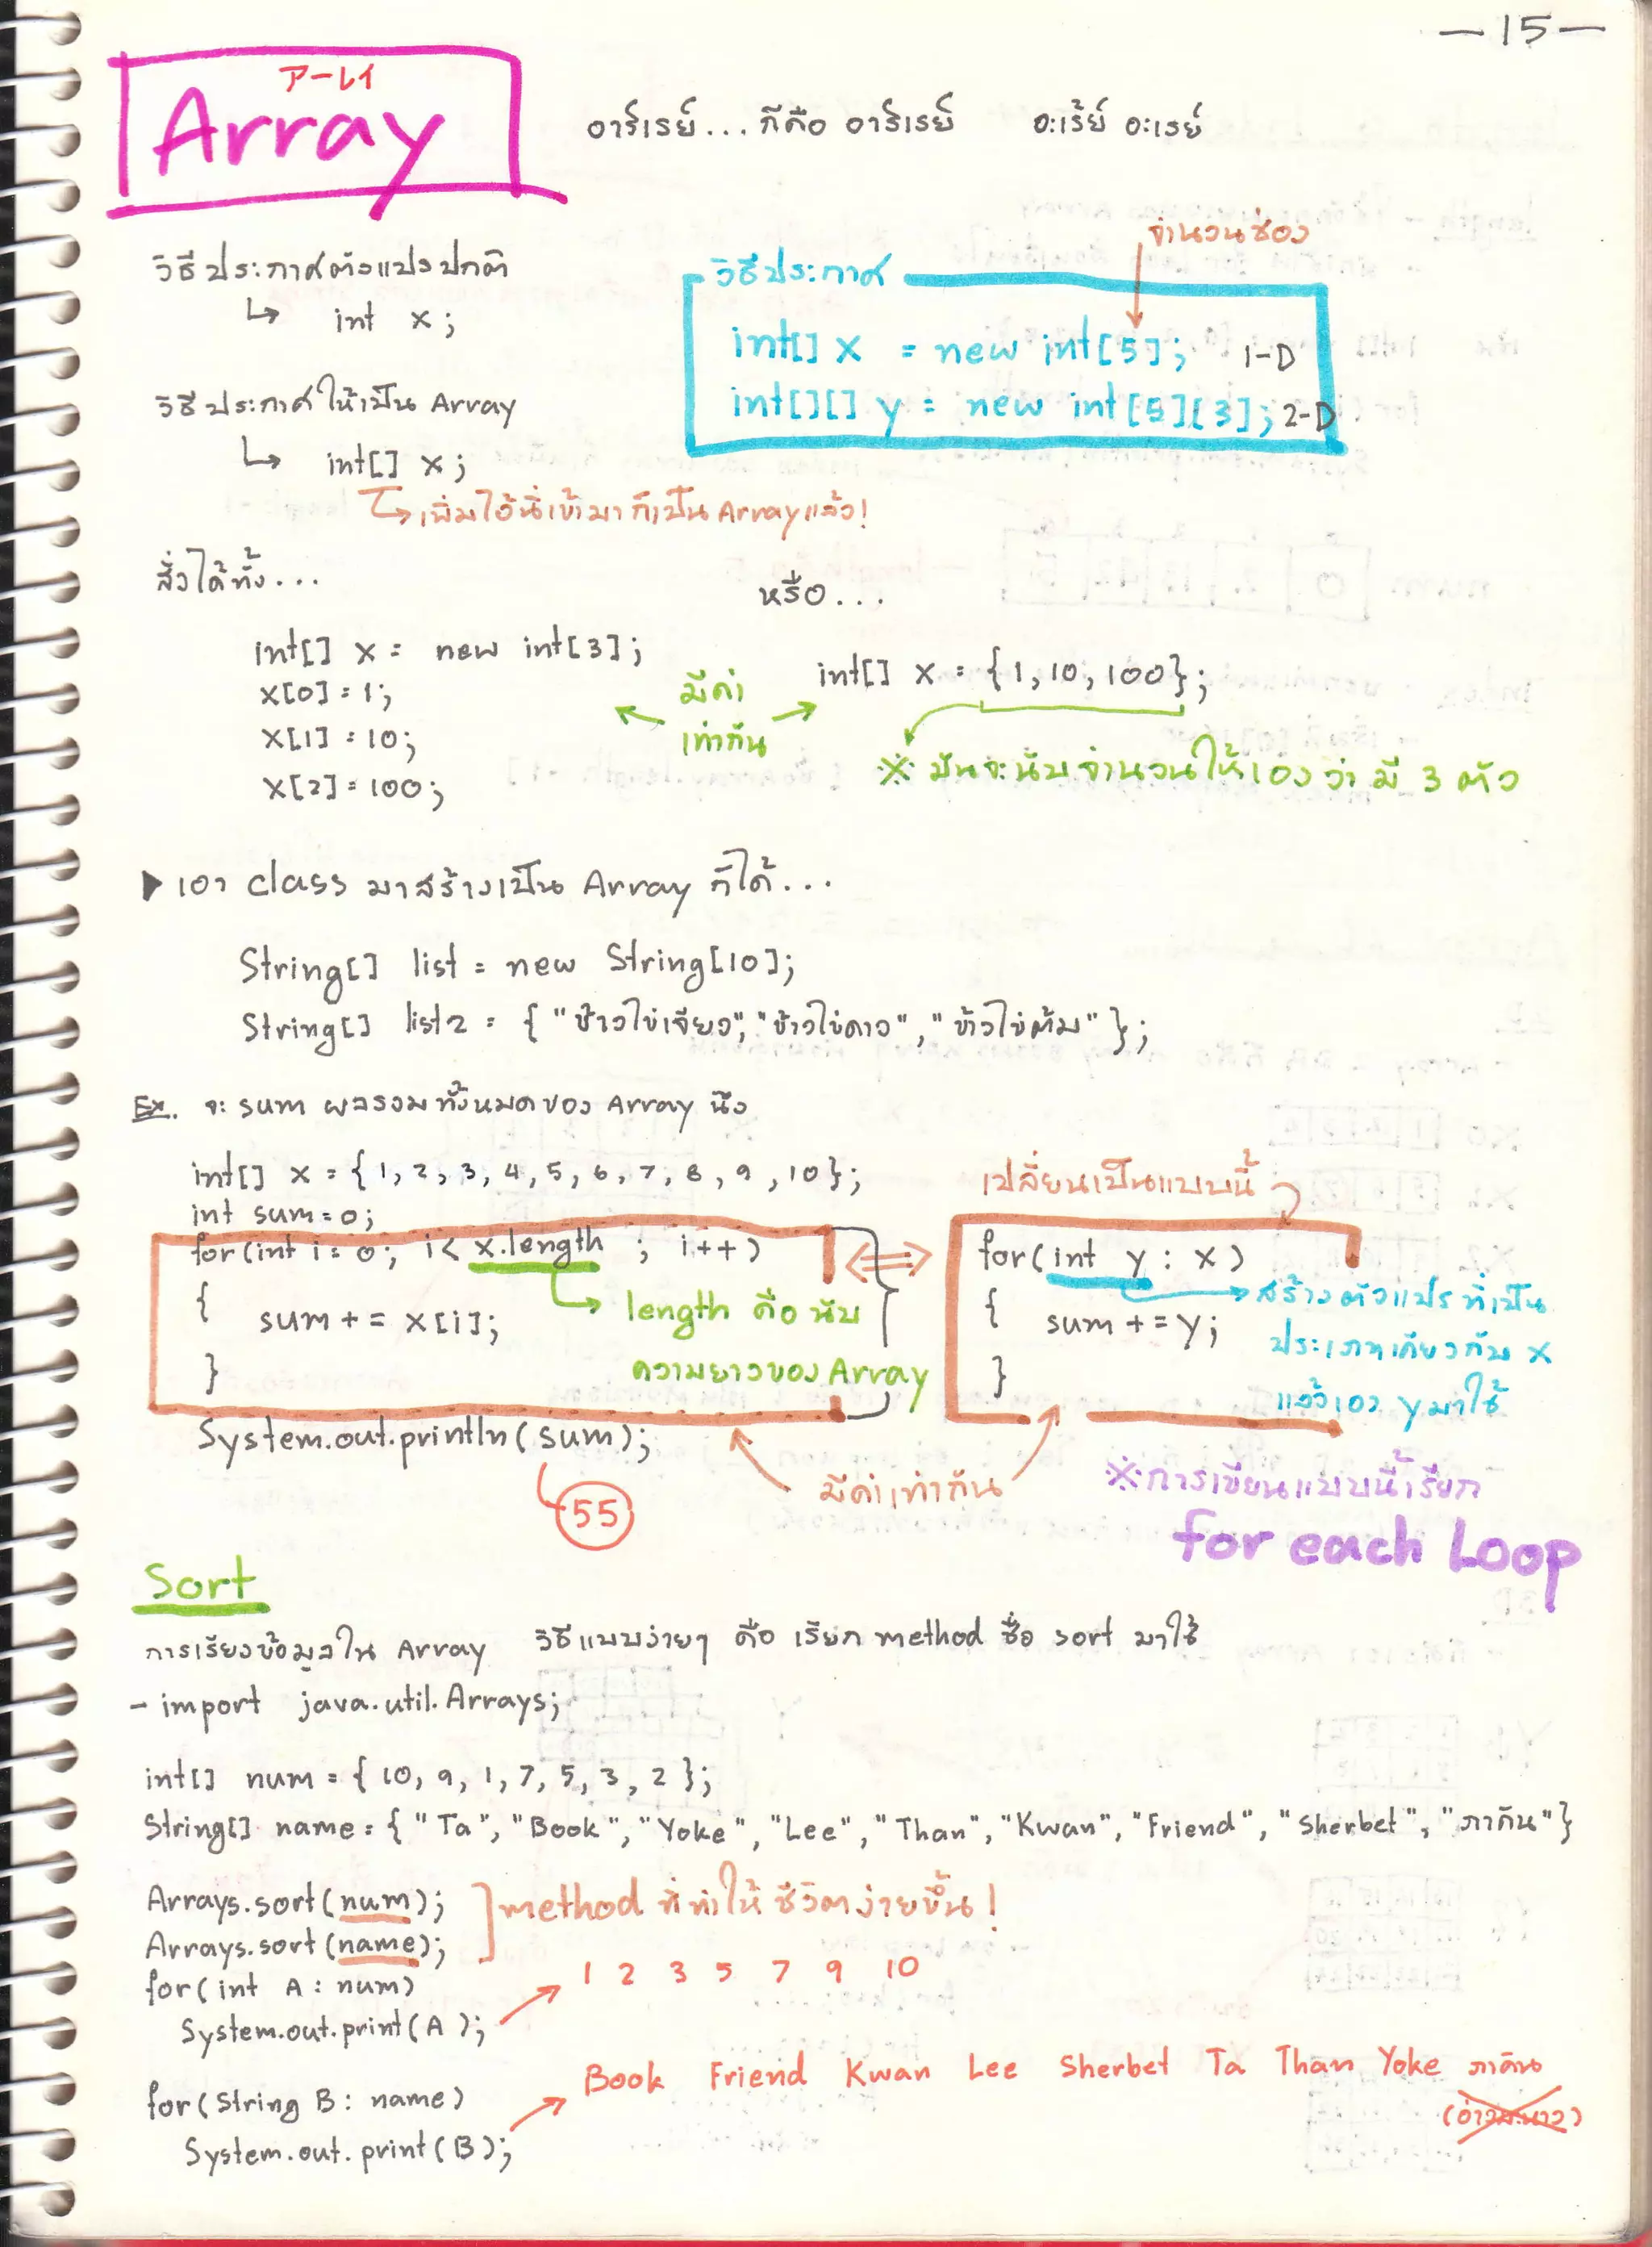 -15-
アーレイ
Array
อาร์เรย์... ก็คือ อาร์เรย์ อะเร้ย์ อะเรย์
วิธีประกาศตัวแปรปกติ
↳ int x;
จำนวนช่อง
วิธีประกาศ
int[] x = new int[5]; 1-D
int[][] y = new int[5][3]; 2-D
วิธีประกาศให้เป็น Array
↳ int[] x;
↳ เพิ่มไอ้นี่เข้ามาก็เป็น Array แล้ว!
สั่งได้ทั้ง...
หรือ...
int[] x = new int[3];
x[0] = 1;
x[1] = 10;
x[2] = 100;
มีค่า
เท่ากัน
int[] x = {1, 10, 100};
※ มันจะนับจำนวนให้เองว่ามี 3 ตัว
▶ เอา class มาสร้างเป็น Array ก็ได้...
String[] list = new String[10];
String[] list2 = { "ข้าวไข่เจียว", "ข้าวไข่ดาว", "ข้าวไข่ต้ม" };
Ex. จะ sum ผลรวมทั้งหมดของ Array นึง
int[] x = { 1, 2, 3, 4, 5, 6, 7, 8, 9, 10 };
int sum = 0;
for(int i = 0; i < x.length ; i++)
{
sum += x[i];
}
→ length คือ นับ
ความยาวของ Array
System.out.println(sum);
55
เปลี่ยนเป็นแบบนี้
for(int y : x)
{
sum += y;
}
→ สร้างตัวแปรที่เป็น
ประเภทเดียวกับ x
แล้วเอา y มาใช้
มีค่าเท่ากัน
※ การเขียนแบบนี้เรียก
for each Loop
Sort
การเรียงข้อมูลใน Array วิธีแบบง่ายๆ คือ เรียก method ชื่อ sort มาใช้
- import java.util.Arrays;
int[] num = { 10, 9, 1, 7, 5, 3, 2 };
String[] name = { "Ta", "Book", "Yoke", "Lee", "Than", "Kwan", "Friend", "Sherbet", "ภาคิน" }
Arrays.sort(num);
Arrays.sort(name);
method ที่ทำให้ชีวิตง่ายขึ้น!
for(int A : num)
System.out.print(A);
1 2 3 5 7 9 10
for(String B : name)
System.out.print(B);
Book Friend Kwan Lee Sherbet Ta Than Yoke ภาคิน